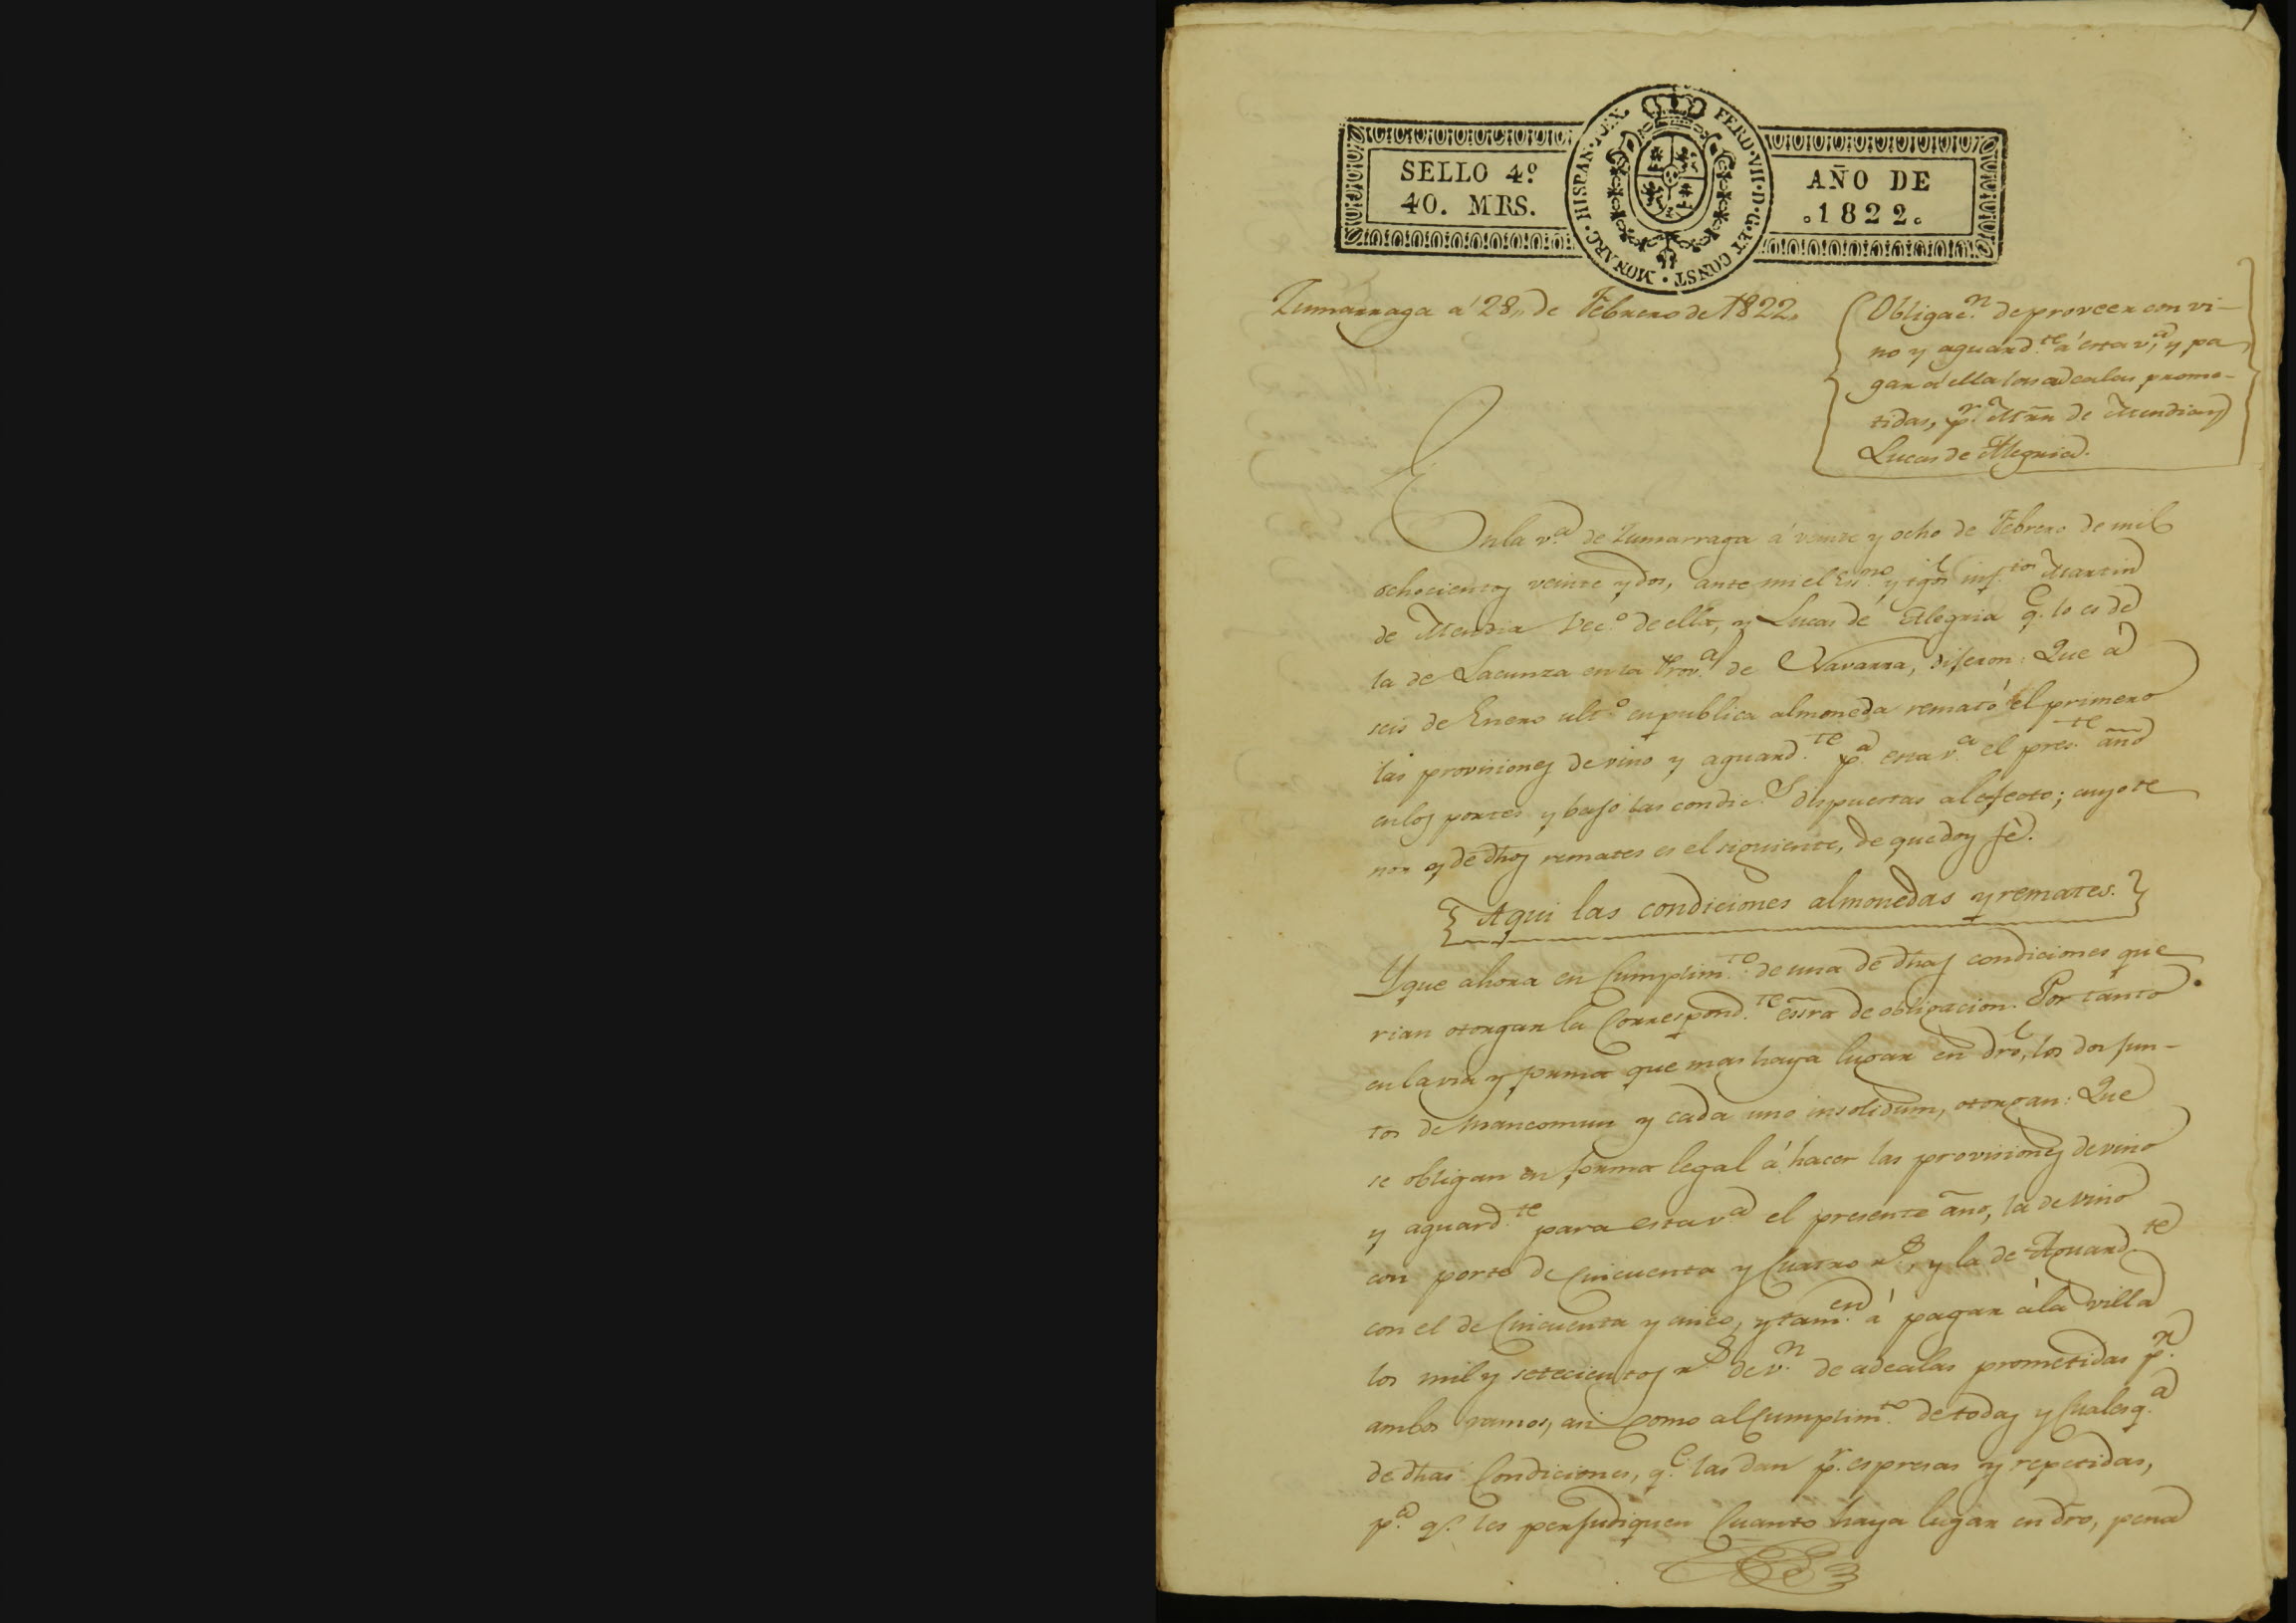 SELLO 4º
40. MRS.
MONARC · HISPAN · REX · FERD · VII · D · G · ET CONST ·
AÑO DE
1822.
Zumarraga á 28,, de Febrero de 1822,
Obligac.n de proveer con vi-
no y aguard.te á esta v.a y pa
gar á ella las adealas prome-
tidas, p.r Mrn de Mendia y
Lucas de Alegria.
En la v.a de Zumarraga á veinte y ocho de Febrero de mil
ochocientos veinte y dos, ante mi el Es.no y tgos inf.tos Martin
de Mendia Vec.o de ella, y Lucas de Alegria q.e lo es de
la de Lacunza en la Prov.a de Navarra, dijeron: Que á
seis de Enero ult.o en publica almoneda remató el primero
las provisiones de vino y aguard.te p.a esta v.a el pres.te año
en los portes y bajo las condic.s dispuestas al efecto; cuyo te
nor y de dhos remates es el siguiente, de que doy fé.
Aqui las condiciones almonedas y remates.
Y que ahora en Cumplim.to de una de dhas condiciones que
rian otorgar la Correspond.te essra de obligacion. Por tanto
en la via y forma que mas haya lugar en dro, los dos jun-
tos de mancomun y cada uno insolidum, otorgan: Que
se obligan en forma legal á hacer las provisiones de vino
y aguard.te para esta v.a el presente año, la de vino
con porte de Cincuenta y Cuatro r.s, y la de Aguard.te
con el de Cincuenta y cinco, y tam.en á pagar á la villa
los mil y setecientos r.s de v.n de adealas prometidas p.r
ambos ramos, asi como al Cumplim.to de todas y Cualesq.a
de dhas Condiciones, q.e las dan p.r espresas y repetidas,
p.a q.e les perjudiquen Cuanto haya lugar en dro, pena